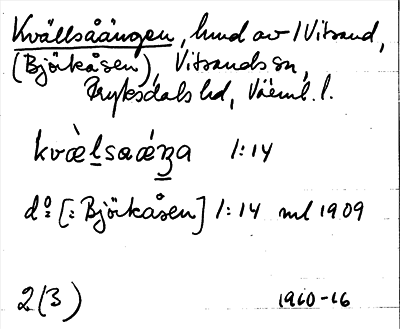 Kvällsåängen, hmd av 1 Vitsand,
(Björkåsen), Vitsands sn,
Fryksdals hd, Värml. l.
kvæ̀lsaǽŋa 1:14
do [: Björkåsen] 1:14 ml 1909
2(3) 1910-16